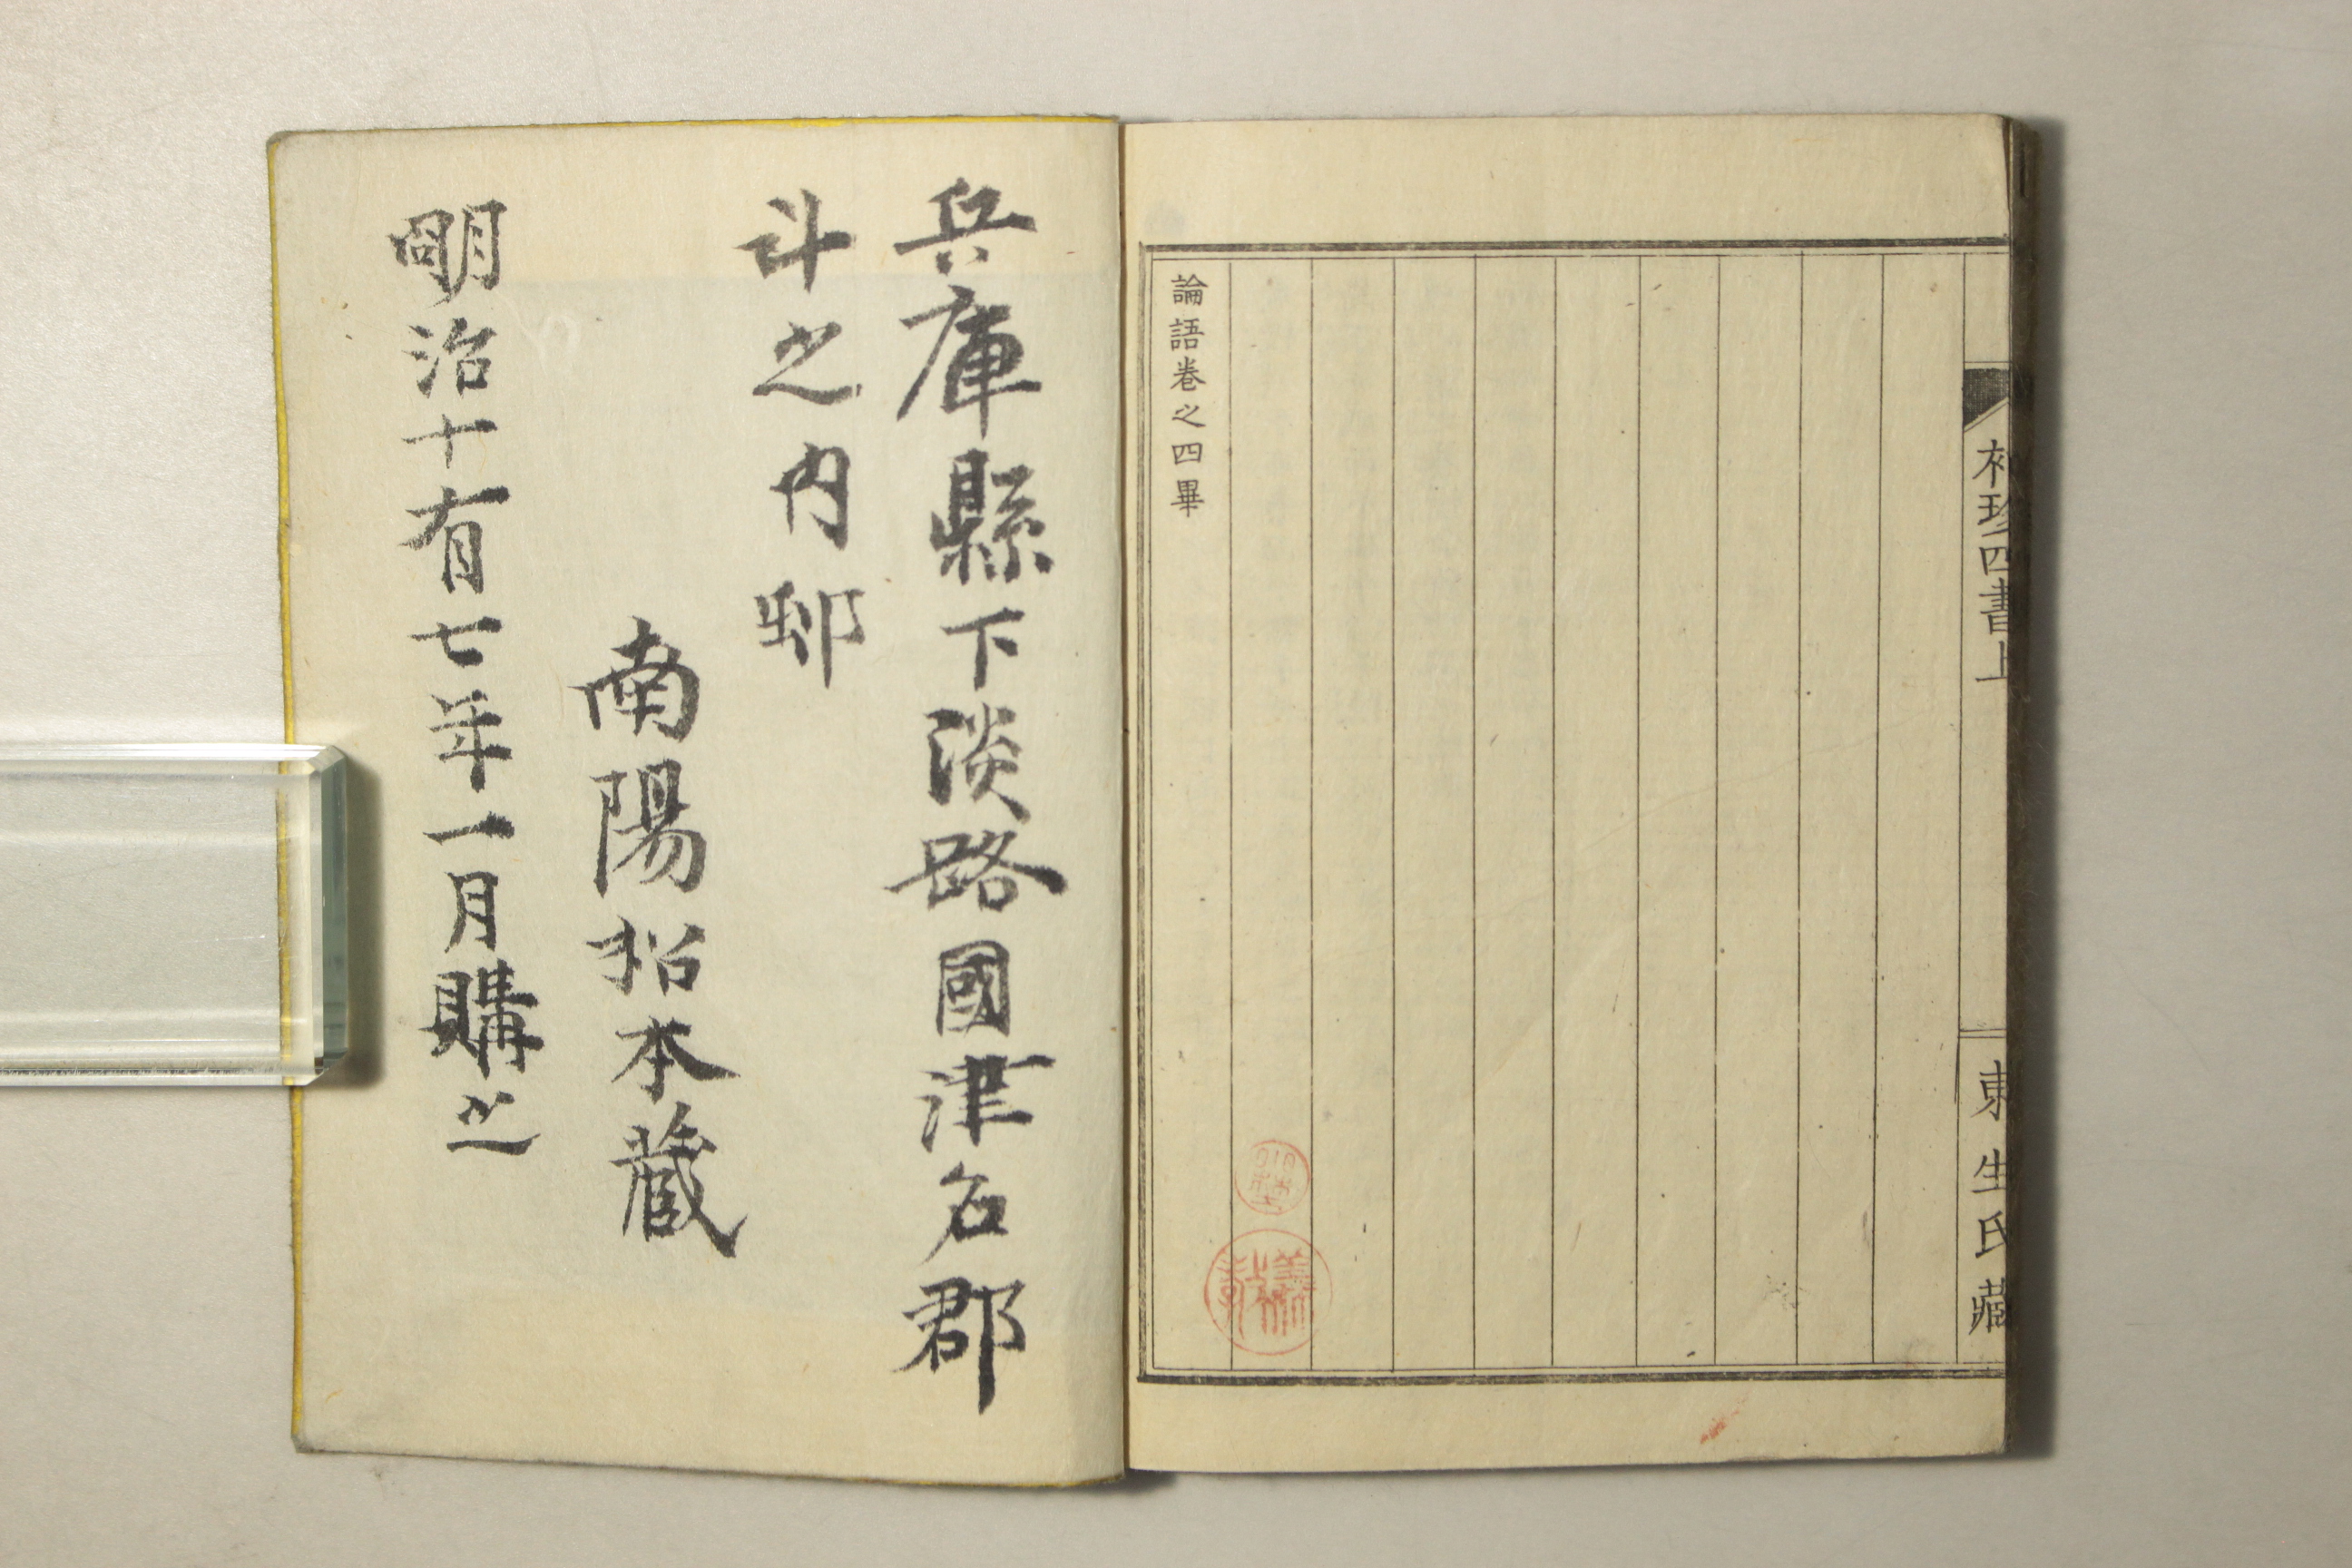 袖珍四書上
東生氏藏
論語卷之四畢
兵庫縣下淡路國津名郡
斗之内邨
南陽柗本藏
朙治十有七年一月購之